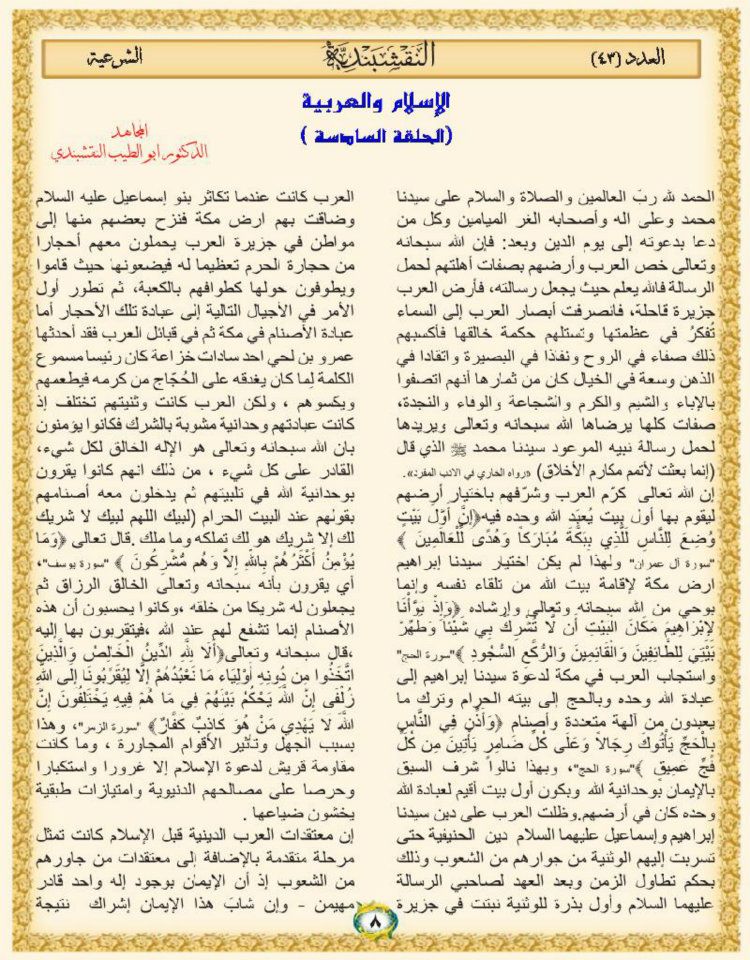 العدد (٤٣)
النقشبندية
الشرعية
الإسلام والعربية
(الحلقة السادسة )
المجاهد
الدكتور ابو الطيب النقشبندي
الحمد لله ربّ العالمين والصلاة والسلام على سيدنا
محمد وعلى اله وأصحابه الغر الميامين وكل من
دعا بدعوته إلى يوم الدين وبعد: فإن الله سبحانه
وتعالى خص العرب وأرضهم بصفات أهلتهم لحمل
الرسالة فالله يعلم حيث يجعل رسالته، فأرض العرب
جزيرة قاحلة، فانصرفت أبصار العرب إلى السماء
تفكرُ في عظمتها وتستلهم حكمة خالقها فأكسبهم
ذلك صفاء في الروح ونفاذا في البصيرة واتقادا في
الذهن وسعة في الخيال كان من ثمارها أنهم اتصفوا
بالإباء والشيم والكرم والشجاعة والوفاء والنجدة،
صفات كلها يرضاها الله سبحانه وتعالى ويريدها
لحمل رسالة نبيه الموعود سيدنا محمد ﷺ الذي قال
(إنما بعثت لأتمم مكارم الأخلاق) «رواه البخاري في الادب المفرد».
إن الله تعالى كرّم العرب وشرّفهم باختيار أرضهم
ليقوم بها أول بيت يُعبَد الله وحده فيه﴿إِنَّ أَوَّلَ بَيْتٍ
وُضِعَ لِلنَّاسِ لَلَّذِي بِبَكَّةَ مُبَارَكاً وَهُدًى لِّلْعَالَمِينَ ﴾
"سورة آل عمران" ولهذا لم يكن اختيار سيدنا إبراهيم
ارض مكة لإقامة بيت الله من تلقاء نفسه وإنما
بوحي من الله سبحانه وتعالى وإرشاده ﴿وَإِذْ بَوَّأْنَا
لِإِبْرَاهِيمَ مَكَانَ الْبَيْتِ أَن لَّا تُشْرِكْ بِي شَيْئاً وَطَهِّرْ
بَيْتِيَ لِلطَّائِفِينَ وَالْقَائِمِينَ وَالرُّكَّعِ السُّجُودِ ﴾"سورة الحج"
واستجاب العرب في مكة لدعوة سيدنا إبراهيم إلى
عبادة الله وحده وبالحج إلى بيته الحرام وترك ما
يعبدون من آلهة متعددة وأصنام ﴿وَأَذِّن فِي النَّاسِ
بِالْحَجِّ يَأْتُوكَ رِجَالاً وَعَلَى كُلِّ ضَامِرٍ يَأْتِينَ مِن كُلِّ
فَجٍّ عَمِيقٍ ﴾"سورة الحج"، وبهذا نالوا شرف السبق
بالإيمان بوحدانية الله وبكون أول بيت أقيم لعبادة الله
وحده كان في أرضهم.وظلت العرب على دين سيدنا
إبراهيم وإسماعيل عليهما السلام دين الحنيفية حتى
تسربت إليهم الوثنية من جوارهم من الشعوب وذلك
بحكم تطاول الزمن وبعد العهد لصاحبي الرسالة
عليهما السلام وأول بذرة للوثنية نبتت في جزيرة
العرب كانت عندما تكاثر بنو إسماعيل عليه السلام
وضاقت بهم ارض مكة فنزح بعضهم منها إلى
مواطن في جزيرة العرب يحملون معهم أحجارا
من حجارة الحرم تعظيما له فيضعونها حيث قاموا
ويطوفون حولها كطوافهم بالكعبة، ثم تطور أول
الأمر في الأجيال التالية إلى عبادة تلك الأحجار أما
عبادة الأصنام في مكة ثم في قبائل العرب فقد أحدثها
عمرو بن لحي احد سادات خزاعة كان رئيسا مسموع
الكلمة لِما كان يغدقه على الحُجّاج من كرمه فيطعمهم
ويكسوهم ، ولكن العرب كانت وثنيتهم تختلف إذ
كانت عبادتهم وحدانية مشوبة بالشرك فكانوا يؤمنون
بان الله سبحانه وتعالى هو الإله الخالق لكل شيء،
القادر على كل شيء ، من ذلك انهم كانوا يقرون
بوحدانية الله في تلبيتهم ثم يدخلون معه أصنامهم
بقولهم عند البيت الحرام (لبيك اللهم لبيك لا شريك
لك إلا شريك هو لك تملكه وما ملك .قال تعالى ﴿وَمَا
يُؤْمِنُ أَكْثَرُهُمْ بِاللّهِ إِلاَّ وَهُم مُّشْرِكُونَ ﴾ "سورة يوسف"،
أي يقرون بأنه سبحانه وتعالى الخالق الرزاق ثم
يجعلون له شريكا من خلقه ،وكانوا يحسبون أن هذه
الأصنام إنما تشفع لهم عند الله ،فيتقربون بها إليه
،قال سبحانه وتعالى﴿أَلَا لِلَّهِ الدِّينُ الْخَالِصُ وَالَّذِينَ
اتَّخَذُوا مِن دُونِهِ أَوْلِيَاء مَا نَعْبُدُهُمْ إِلَّا لِيُقَرِّبُونَا إِلَى اللَّهِ
زُلْفَى إِنَّ اللَّهَ يَحْكُمُ بَيْنَهُمْ فِي مَا هُمْ فِيهِ يَخْتَلِفُونَ إِنَّ
اللَّهَ لَا يَهْدِي مَنْ هُوَ كَاذِبٌ كَفَّارٌ﴾ "سورة الزمر"، وهذا
بسبب الجهل وتأثير الأقوام المجاورة ، وما كانت
مقاومة قريش لدعوة الإسلام إلا غرورا واستكبارا
وحرصا على مصالحهم الدنيوية وامتيازات طبقية
يخشون ضياعها .
إن معتقدات العرب الدينية قبل الإسلام كانت تمثل
مرحلة متقدمة بالإضافة إلى معتقدات من جاورهم
من الشعوب إذ أن الإيمان بوجود إله واحد قادر
مهيمن - وإن شابَ هذا الإيمان إشراك نتيجة
٨